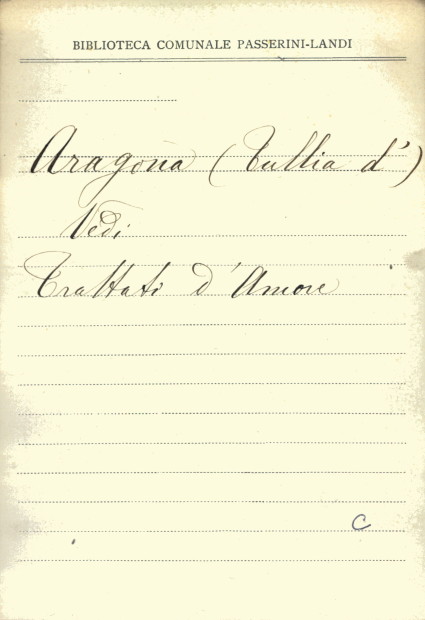 BIBLIOTECA COMUNALE PASSERINI-LANDI
Aragona (Tullia d')
Vedi
Trattati d'Amore
C